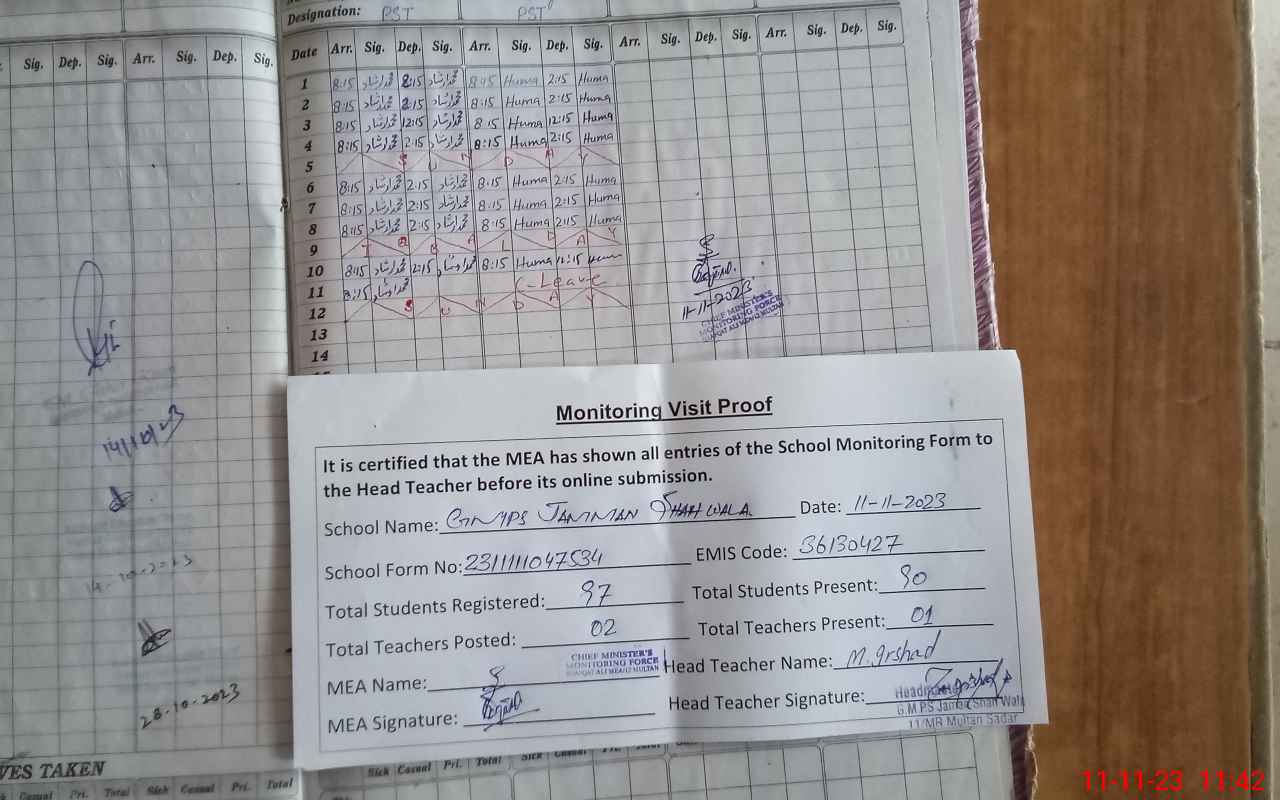 Designation: PST PST
Sig. Dep. Sig. Arr. Sig. Dep. Sig.
Date Arr. Sig. Dep. Sig. Arr. Sig. Dep. Sig. Arr. Sig. Dep. Sig. Arr. Sig. Dep. Sig.
1 8:15 محمد ارشاد 2:15 محمد ارشاد 8:15 Huma 2:15 Huma
2 8:15 محمد ارشاد 2:15 محمد ارشاد 8:15 Huma 2:15 Huma
3 8:15 محمد ارشاد 12:15 محمد ارشاد 8:15 Huma 12:15 Huma
4 8:15 محمد ارشاد 2:15 محمد ارشاد 8:15 Huma 2:15 Huma
5 S U N D A Y
6 8:15 محمد ارشاد 2:15 محمد ارشاد 8:15 Huma 2:15 Huma
7 8:15 محمد ارشاد 2:15 محمد ارشاد 8:15 Huma 2:15 Huma
8 8:15 محمد ارشاد 2:15 محمد ارشاد 8:15 Huma 2:15 Huma
9 I Q B A L D A Y
10 8:15 محمد ارشاد 12:15 محمد ارشاد 8:15 Huma 12:15 Huma
11 8:15 محمد ارشاد C-Leave
12 S U N D A Y
13
14
11-11-2023
CHIEF MINISTER'S
MONITORING FORCE
14/10/23
14-10-2023
28-10-2023
Monitoring Visit Proof
It is certified that the MEA has shown all entries of the School Monitoring Form to
the Head Teacher before its online submission.
School Name: GMPS JAMMAN SHAH WALA Date: 11-11-2023
School Form No: 2311111047534 EMIS Code: 36130427
Total Students Registered: 97 Total Students Present: 90
Total Teachers Posted: 02 Total Teachers Present: 01
CHIEF MINISTER'S
MONITORING FORCE
MEA Name: Head Teacher Name: M. Irshad
MEA Signature: Head Teacher Signature:
G.M.P.S Jaman Shah Wala
11/MR Multan Sadar
VES TAKEN
Casual Pri. Total Sick Casual Pri. Total
Sick Casual Pri. Total Sick Casual Pri. Total
11-11-23 11:42